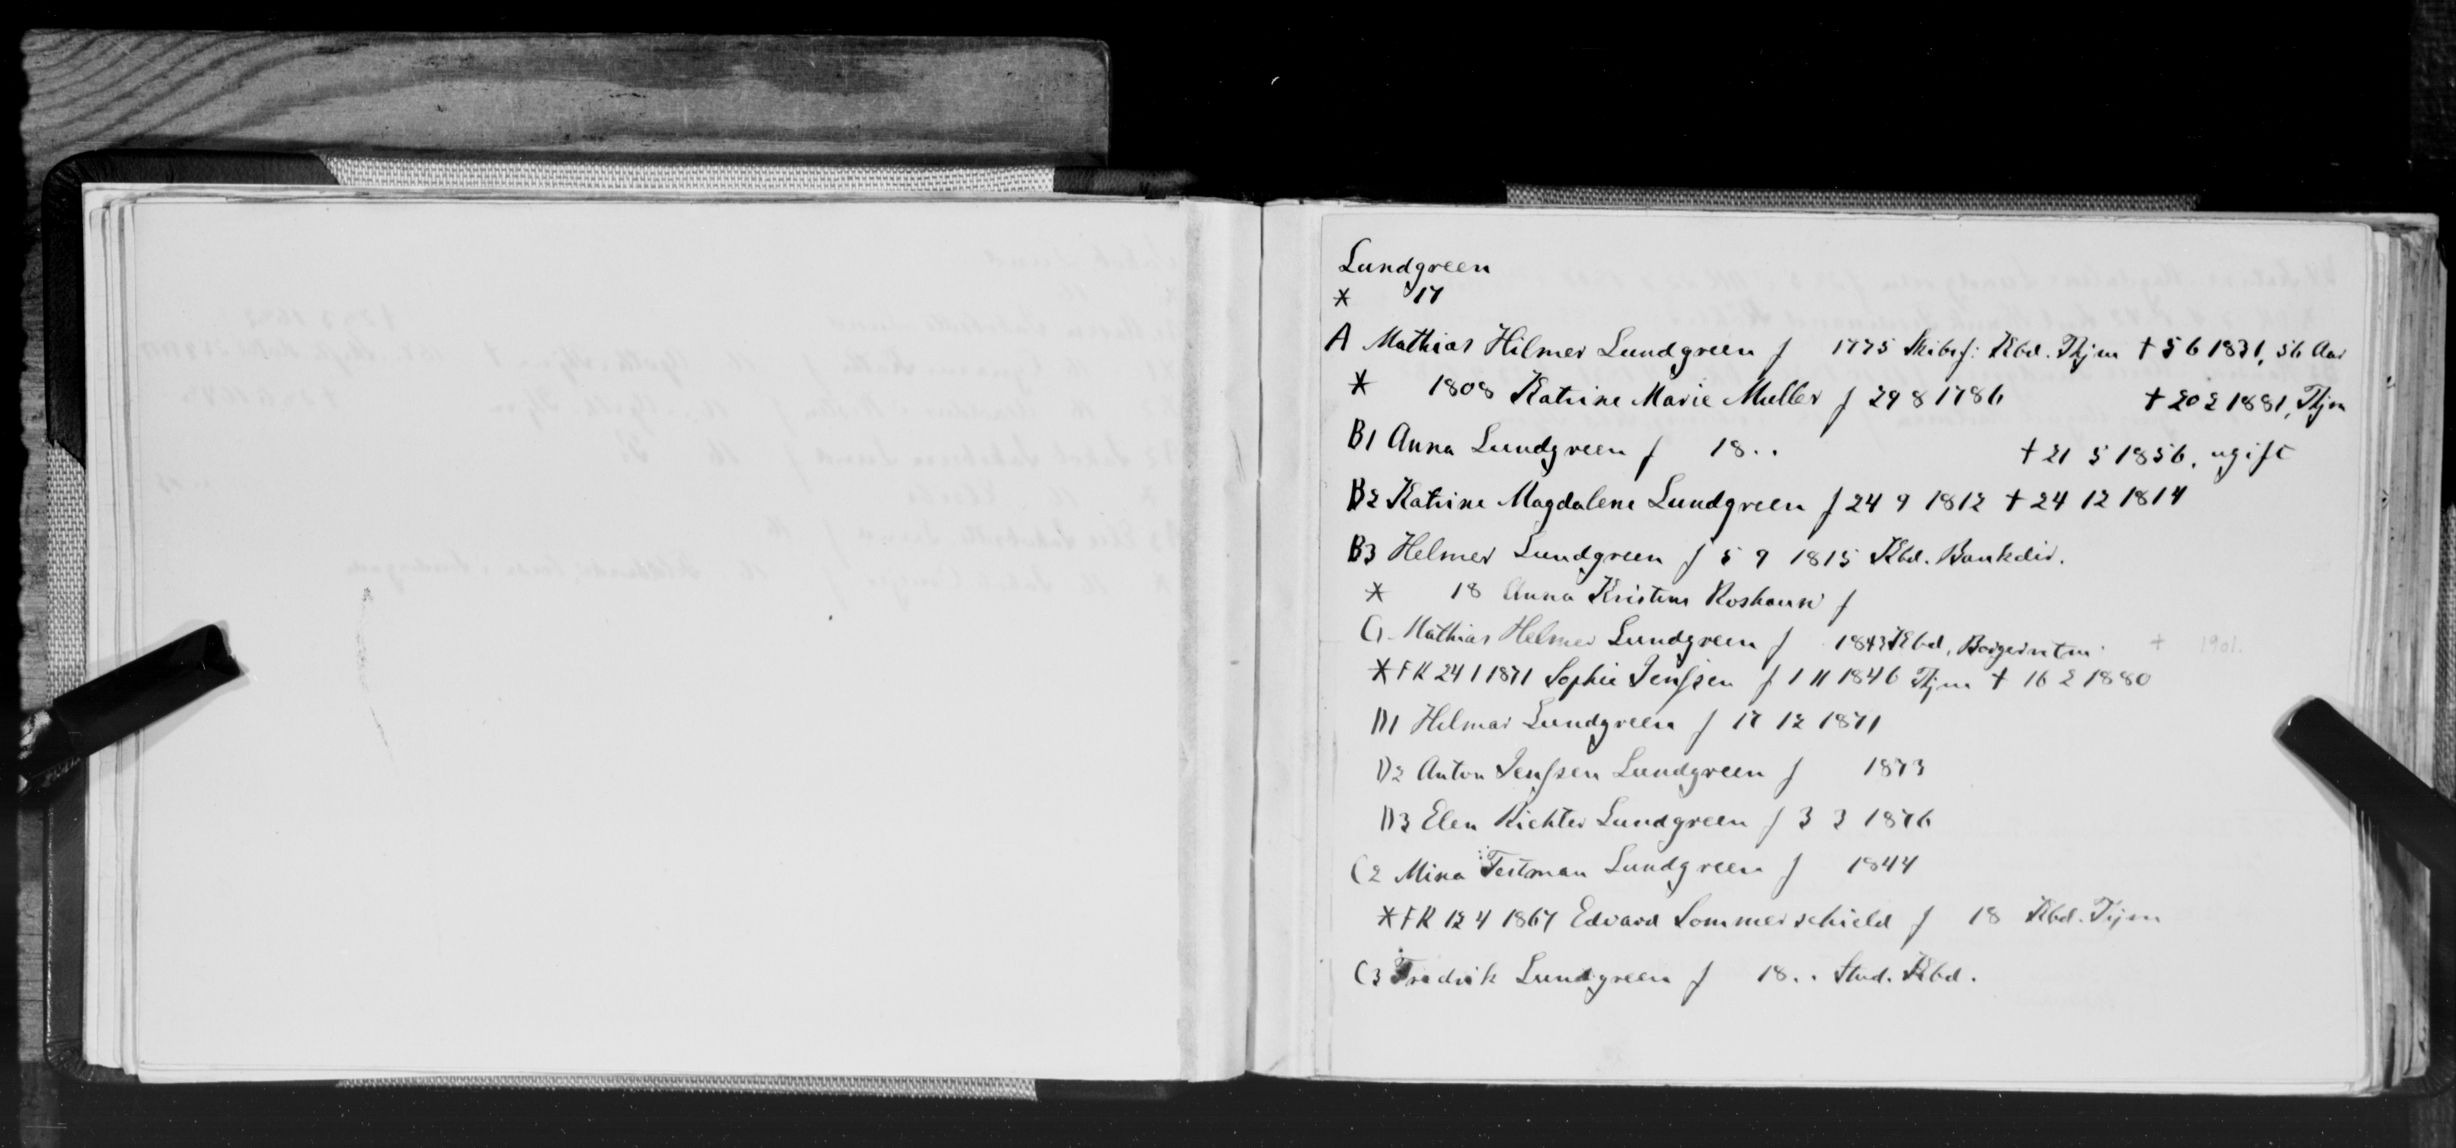 Lundgreen
* 17
A Mathias Hilmer Lundgreen f 1775 Skibsf: Kbd. Thjm † 5 6 1831, 56 Aar
* 1808 Katrine Marie Muller f 29 8 1786 † 20 2 1881, Thjm
B1 Anna Lundgreen f 18.. † 21 5 1856, ugift
B2 Katrine Magdalene Lundgreen f 24 9 1812 † 24 12 1814
B3 Helmer Lundgreen f 5 9 1815 Kbd. Bankdir.
* 18 Anna Kristine f
C1 Mathias Helmer Lundgreen f 1843 Kbd, † 1901.
* FK 24 1 1871 Sophie Jenssen f 1 11 1846 Thjm † 16 2 1880
D1 Hilmar Lundgreen f 17 12 1871
D2 Anton Jenssen Lundgreen f 1873
D3 Elen Richter Lundgreen f 3 3 1876
C2 Mina Testman Lundgreen f 1844
* FK 12 4 1867 Edvard Sommerschield f 18 Kbd. Tjm
C3 Fredrik Lundgreen f 18.. Stud. Kbd.